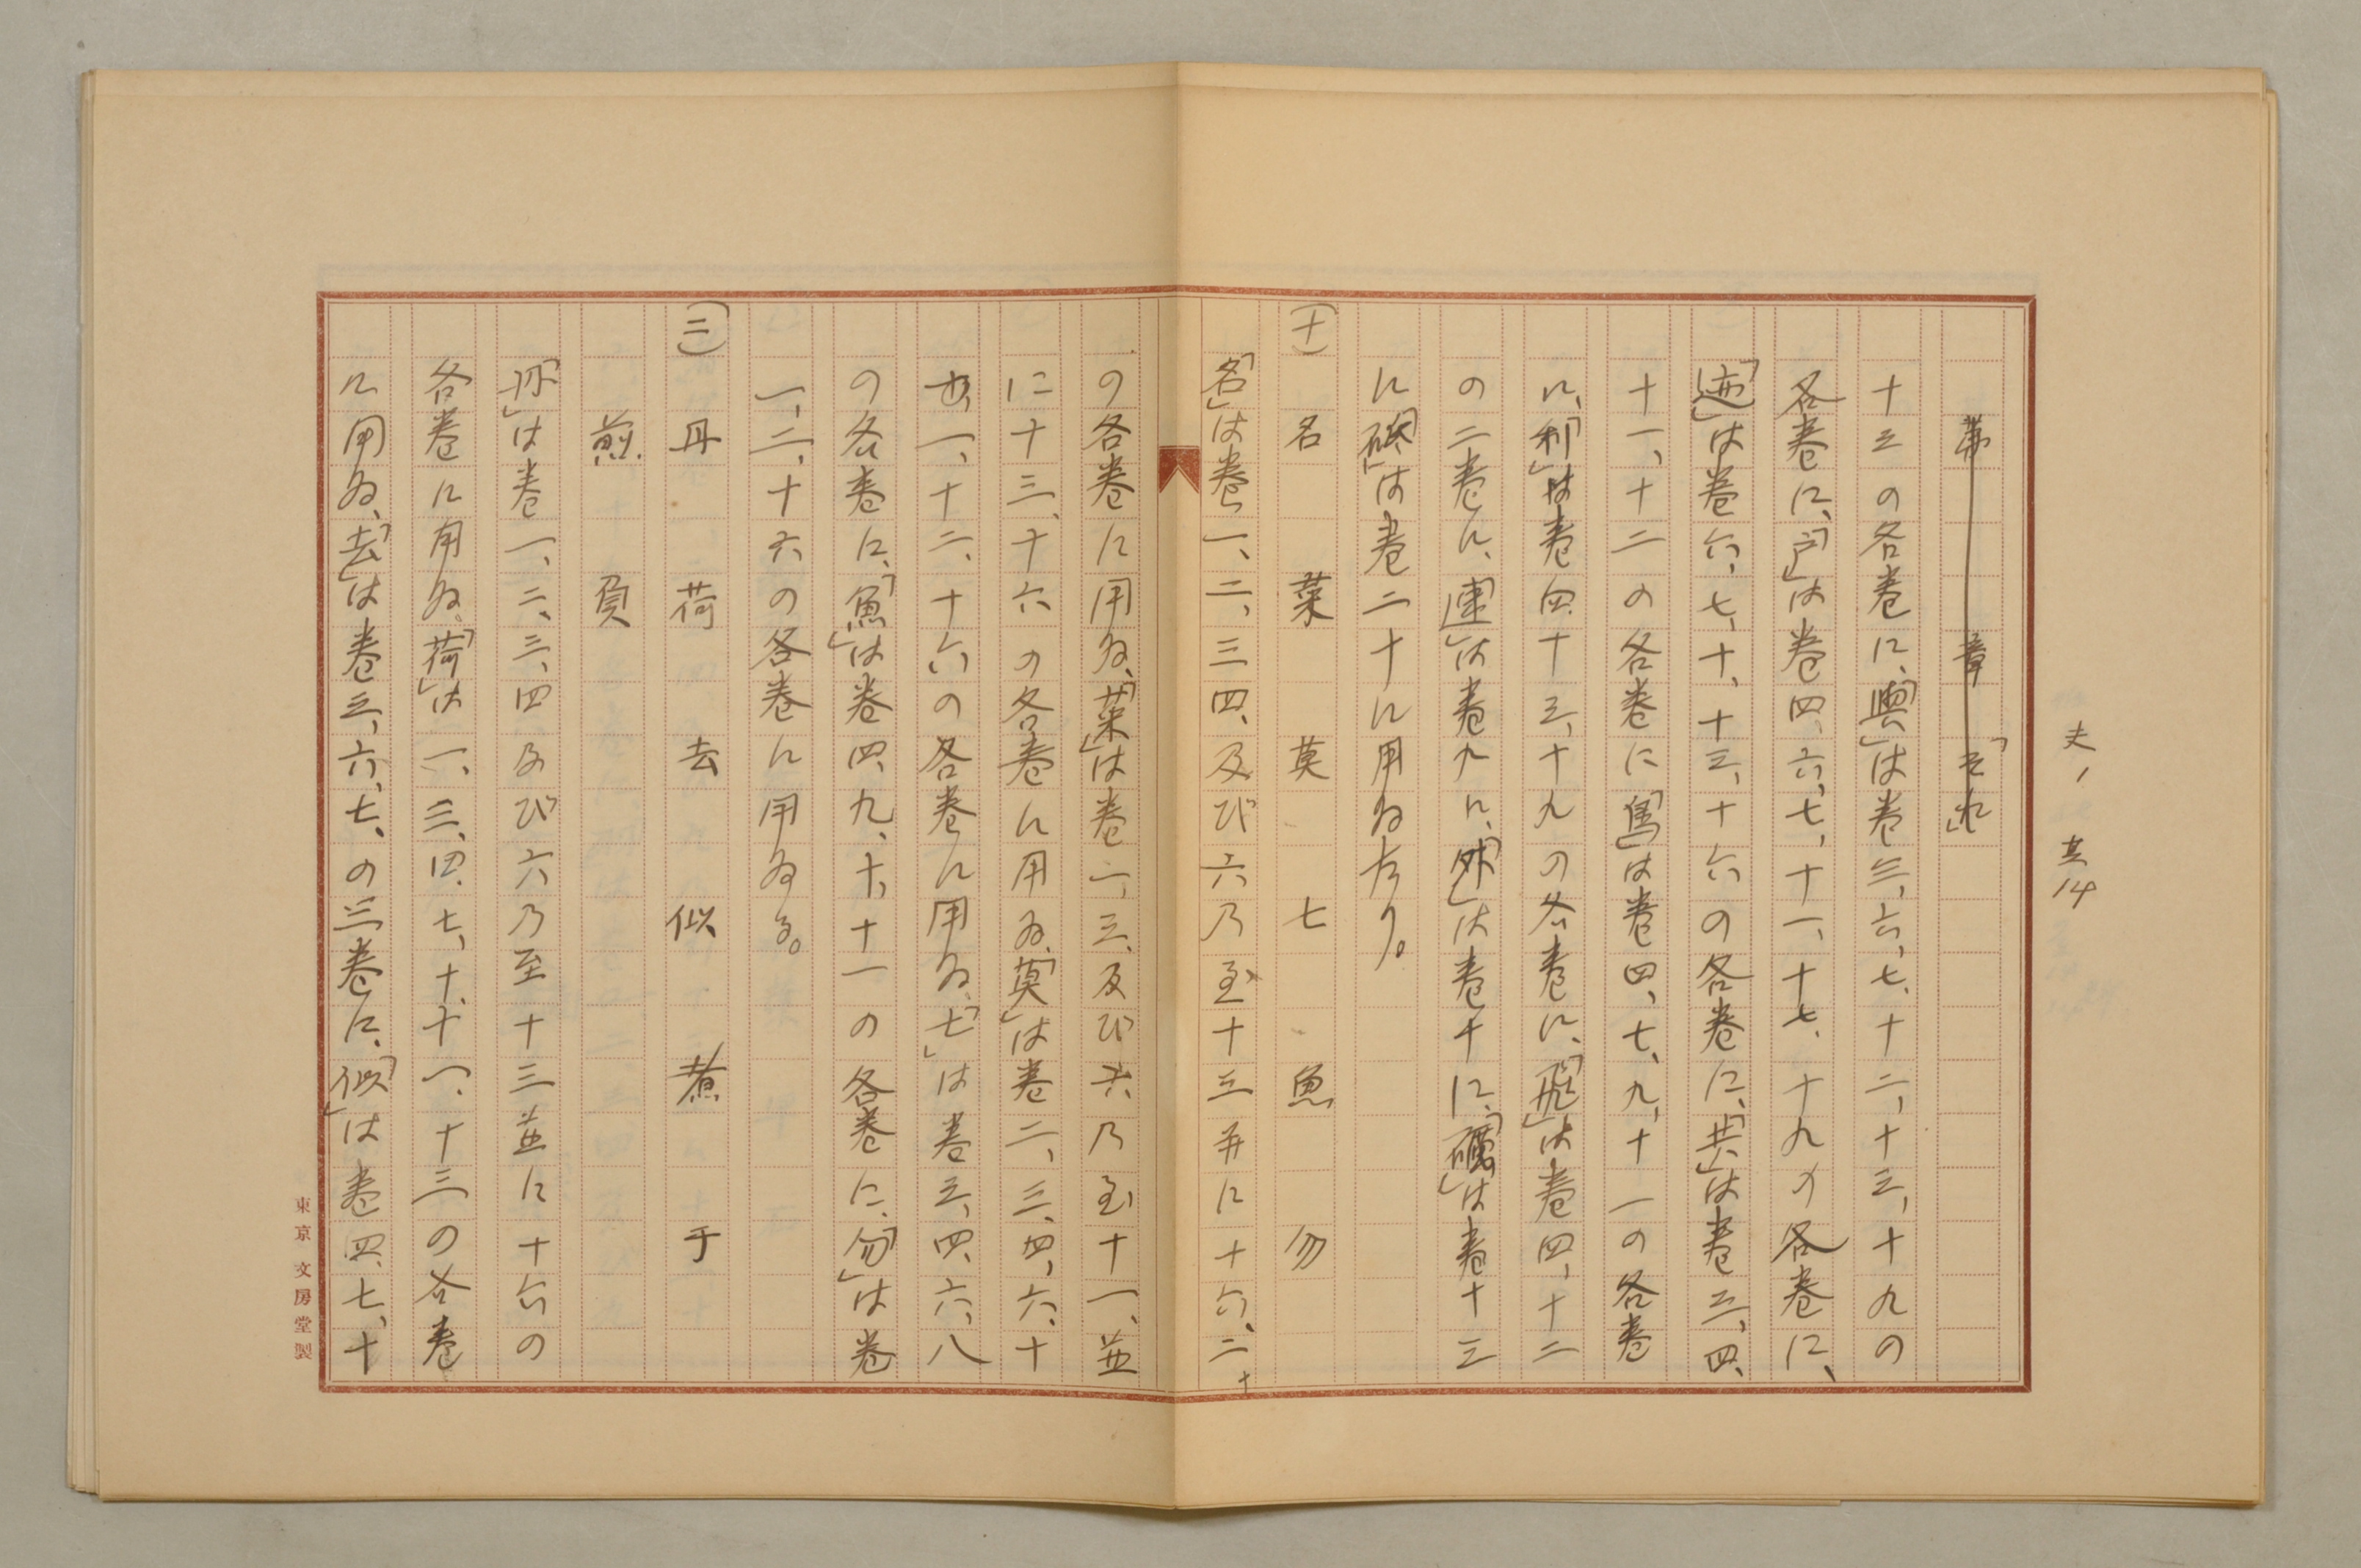 第　章　「それ」
十三の各巻に、「輿」は巻三、六、七、十二、十三、十九の
各巻に、「戸」は巻四、六、七、十一、十七、十九の各巻に、
「迹」は巻六、七、十、十三、十六の各巻に、「共」は巻三、四、
十一、十二の各巻に「鳥」は巻四、七、九、十一の各巻
に、「利」は巻四、十三、十九の各巻に、「飛」は巻四、十二
の二巻に、「連」は巻九に、「外」は巻十に、「礪」は巻十三
に「砥」は巻二十に用ゐたり。
(十)　名　菜　莫　七　魚　勿
「名」は巻一、二、三四、及び六乃至十三并に十六、二十
の各巻に用ゐ、「菜」は巻一、三、及び六乃至十一、並
に十三、十六の各巻に用ゐ、「莫」は巻二、三、四、六、十
一、十二、十六の各巻に用ゐ、「七」は巻三、四、六、八
の各巻に、「魚」は巻四、九、十、十一の各巻に、「勿」は巻
一、二、十六の各巻に用ゐる。
(二)　丹　荷　去　似　煮　于
煎　負
は巻一、二、三、四及び六乃至十三並に十六の
各巻に用ゐ、「荷」は一、三、四、七、十、十一、十三の各巻
に用ゐ、「去」は巻三、六、七、の三巻に、「似」は巻四、七、十
東京文房堂製